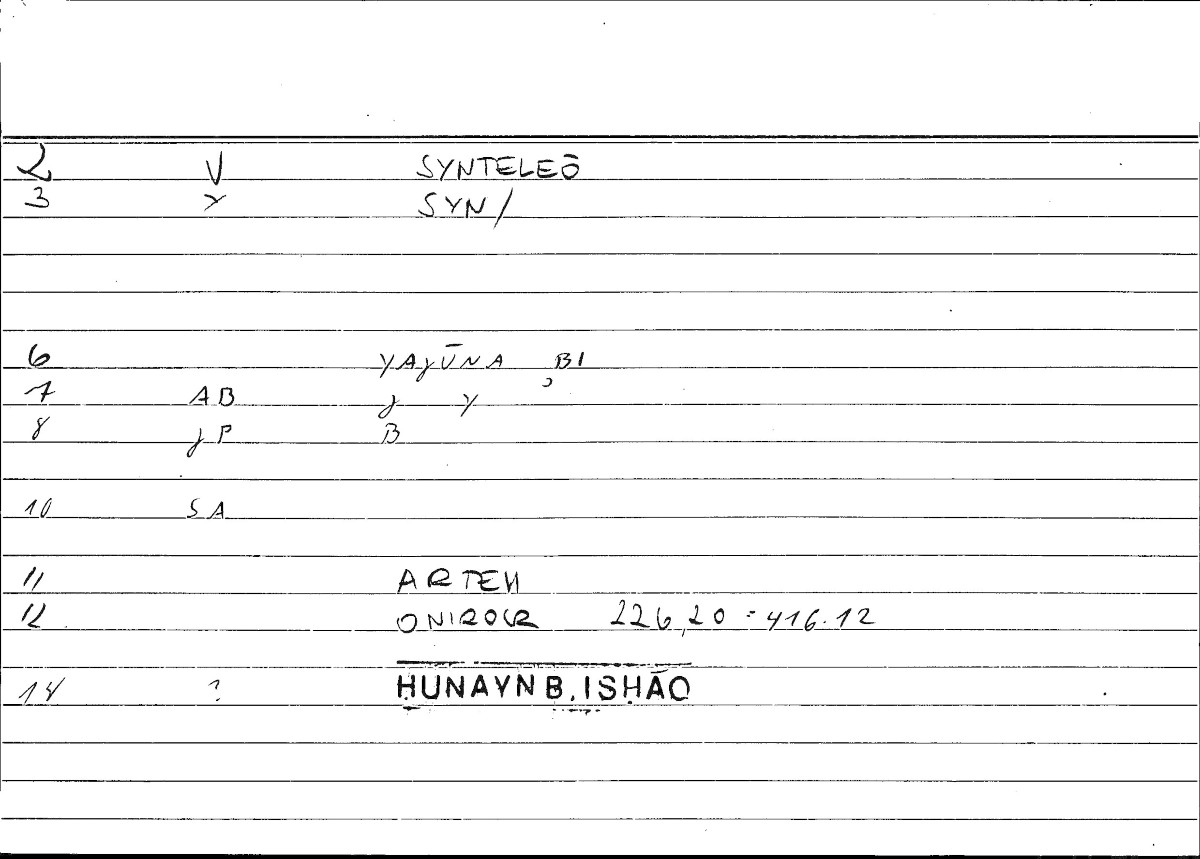 2 V SYNTELEŌ
3 Y SYN/
6 YAJŪNA , BI
7 AB J Y
8 JP B
10 SA
11 ARTEM
12 ONIROCR 226,20 = 416.12
14 ? ḤUNAYN B. ISḤĀQ